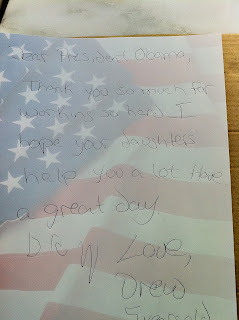 Dear President Obama,
Thank you so much for
working so hard I
hope your daughters
help you a lot. Have
a great day
Love,
Drew